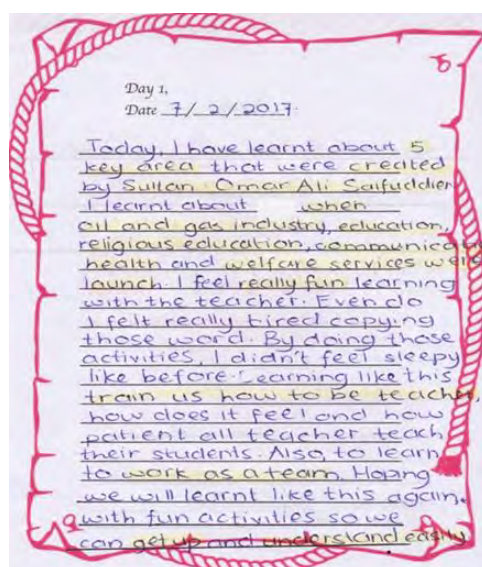 Day 1,
Date 7/2/2017.
Today, I have learnt about 5
key area that were created
by Sultan Omar Ali Saifuddien
I learnt about when
oil and gas industry, education,
religious education, communicatio
health and welfare services were
launch. I feel really fun learning
with the teacher. Even do
I felt really tired copying
those word. By doing those
activities, I didn't feel sleepy
like before. Learning like this
train us how to be teacher,
how does it feel and how
patient all teacher teach
their students. Also, to learn
to work as a team. Hoping
we will learnt like this again.
with fun activities so we
can get up and understand easily